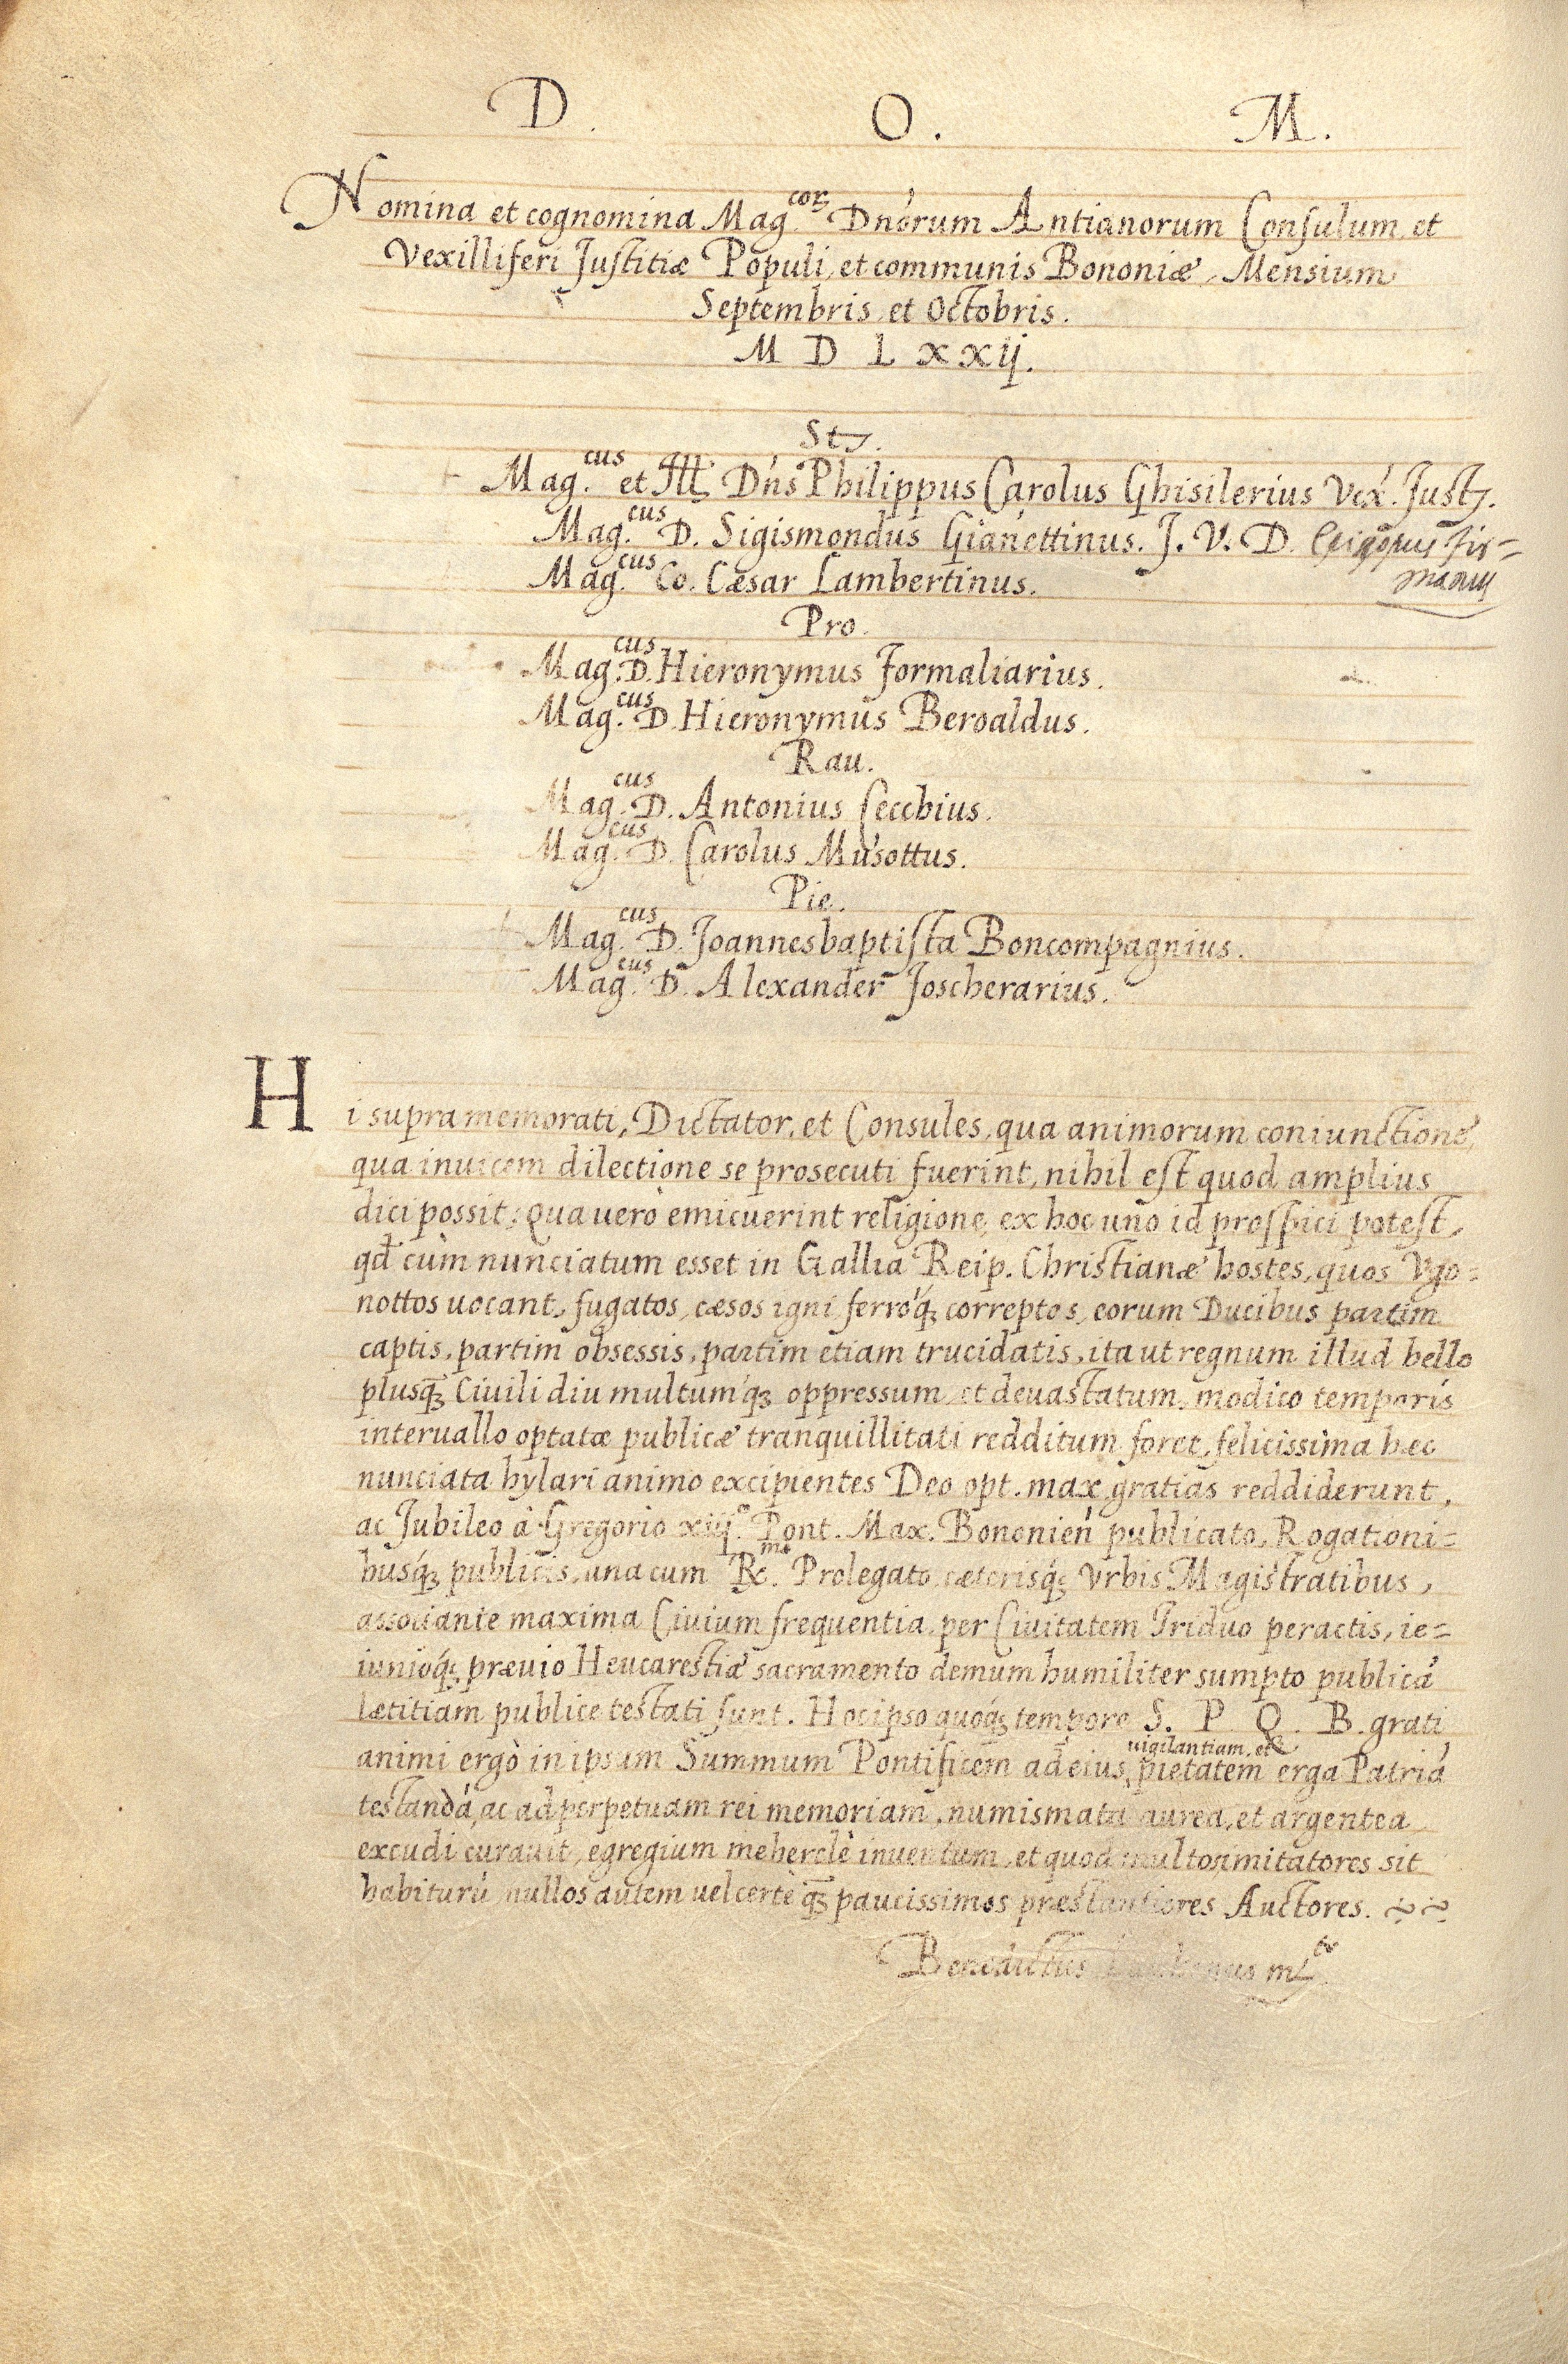 D. O. M.
Nomina et cognomina Mag.corꝝ Dn̄orum Antianorum Consulum, et
Vexilliferi Justitiæ Populi, et communis Bononiæ, Mensium
Septembris, et Octobris.
M D L x x ij.
Stꝫ.
Mag.cus et Ill. Dn̄s Philippus Carolus Ghisilerius Vex. Justꝫ.
Mag.cus D. Sigismondus Gianettinus. J. V. D. Episcopus fir=
manus
Mag.cus Co. Cæsar Lambertinus.
Pro.
Mag.cus D. Hieronymus Formaliarius.
Mag.cus D. Hieronymus Beroaldus.
Rau.
Mag.cus D. Antonius Secchius.
Mag.cus D. Carolus Musottus.
Pie.
Mag.cus D. Joannesbaptista Boncompagnius.
Mag.cus D. Alexander Foscherarius.
Hi supra memorati, Dictator, et Consules, qua animorum coniunctione,
qua inuicem dilectione se prosecuti fuerint, nihil est quod amplius
dici possit: Qua uerò emicuerint religione, ex hoc uno id prospici potest,
qd̄ cùm nunciatum esset in Gallia Reip. Christianæ hostes, quos Vgo=
nottos uocant, fugatos, cæsos igni ferroq́ꝫ correptos, eorum Ducibus partim
captis, partim obsessis, partim etiam trucidatis, ita ut regnum illud bello
plusq̄ꝫ Ciuili diu multumq́ꝫ oppressum, et deuastatum, modico temporis
interuallo optatæ publicæ tranquillitati redditum foret, felicissima hæc
nunciata hylari animo excipientes Deo opt. max. gratias reddiderunt,
ac Jubileo à Gregorio xiij.o Pont. Max. Bononien̄ publicato, Rogationi=
busq́ꝫ publicis, una cum R.mo Prolegato cæterisq́ꝫ Vrbis Magistratibus,
associante maxima Ciuium frequentia, per Ciuitatem Triduo peractis, ie=
iunioq́ꝫ præuio Heucarestiæ sacramento demum humiliter sumpto publicā
lætitiam publice testati sunt. Hoc ipso quoq́ꝫ tempore S. P. Q. B. grati
animi ergò in ipsum Summum Pontificem ad eius uigilantiam, et pietatem erga Patriā
testandā, ac ad perpetuam rei memoriam, numismata aurea, et argentea
excudi curauit, egregium meherclè inuentum, et quod multos imitatores sit
habiturū, nullos autem uel certè q̄ꝫ paucissimos præstantiores Auctores.
Benedictus